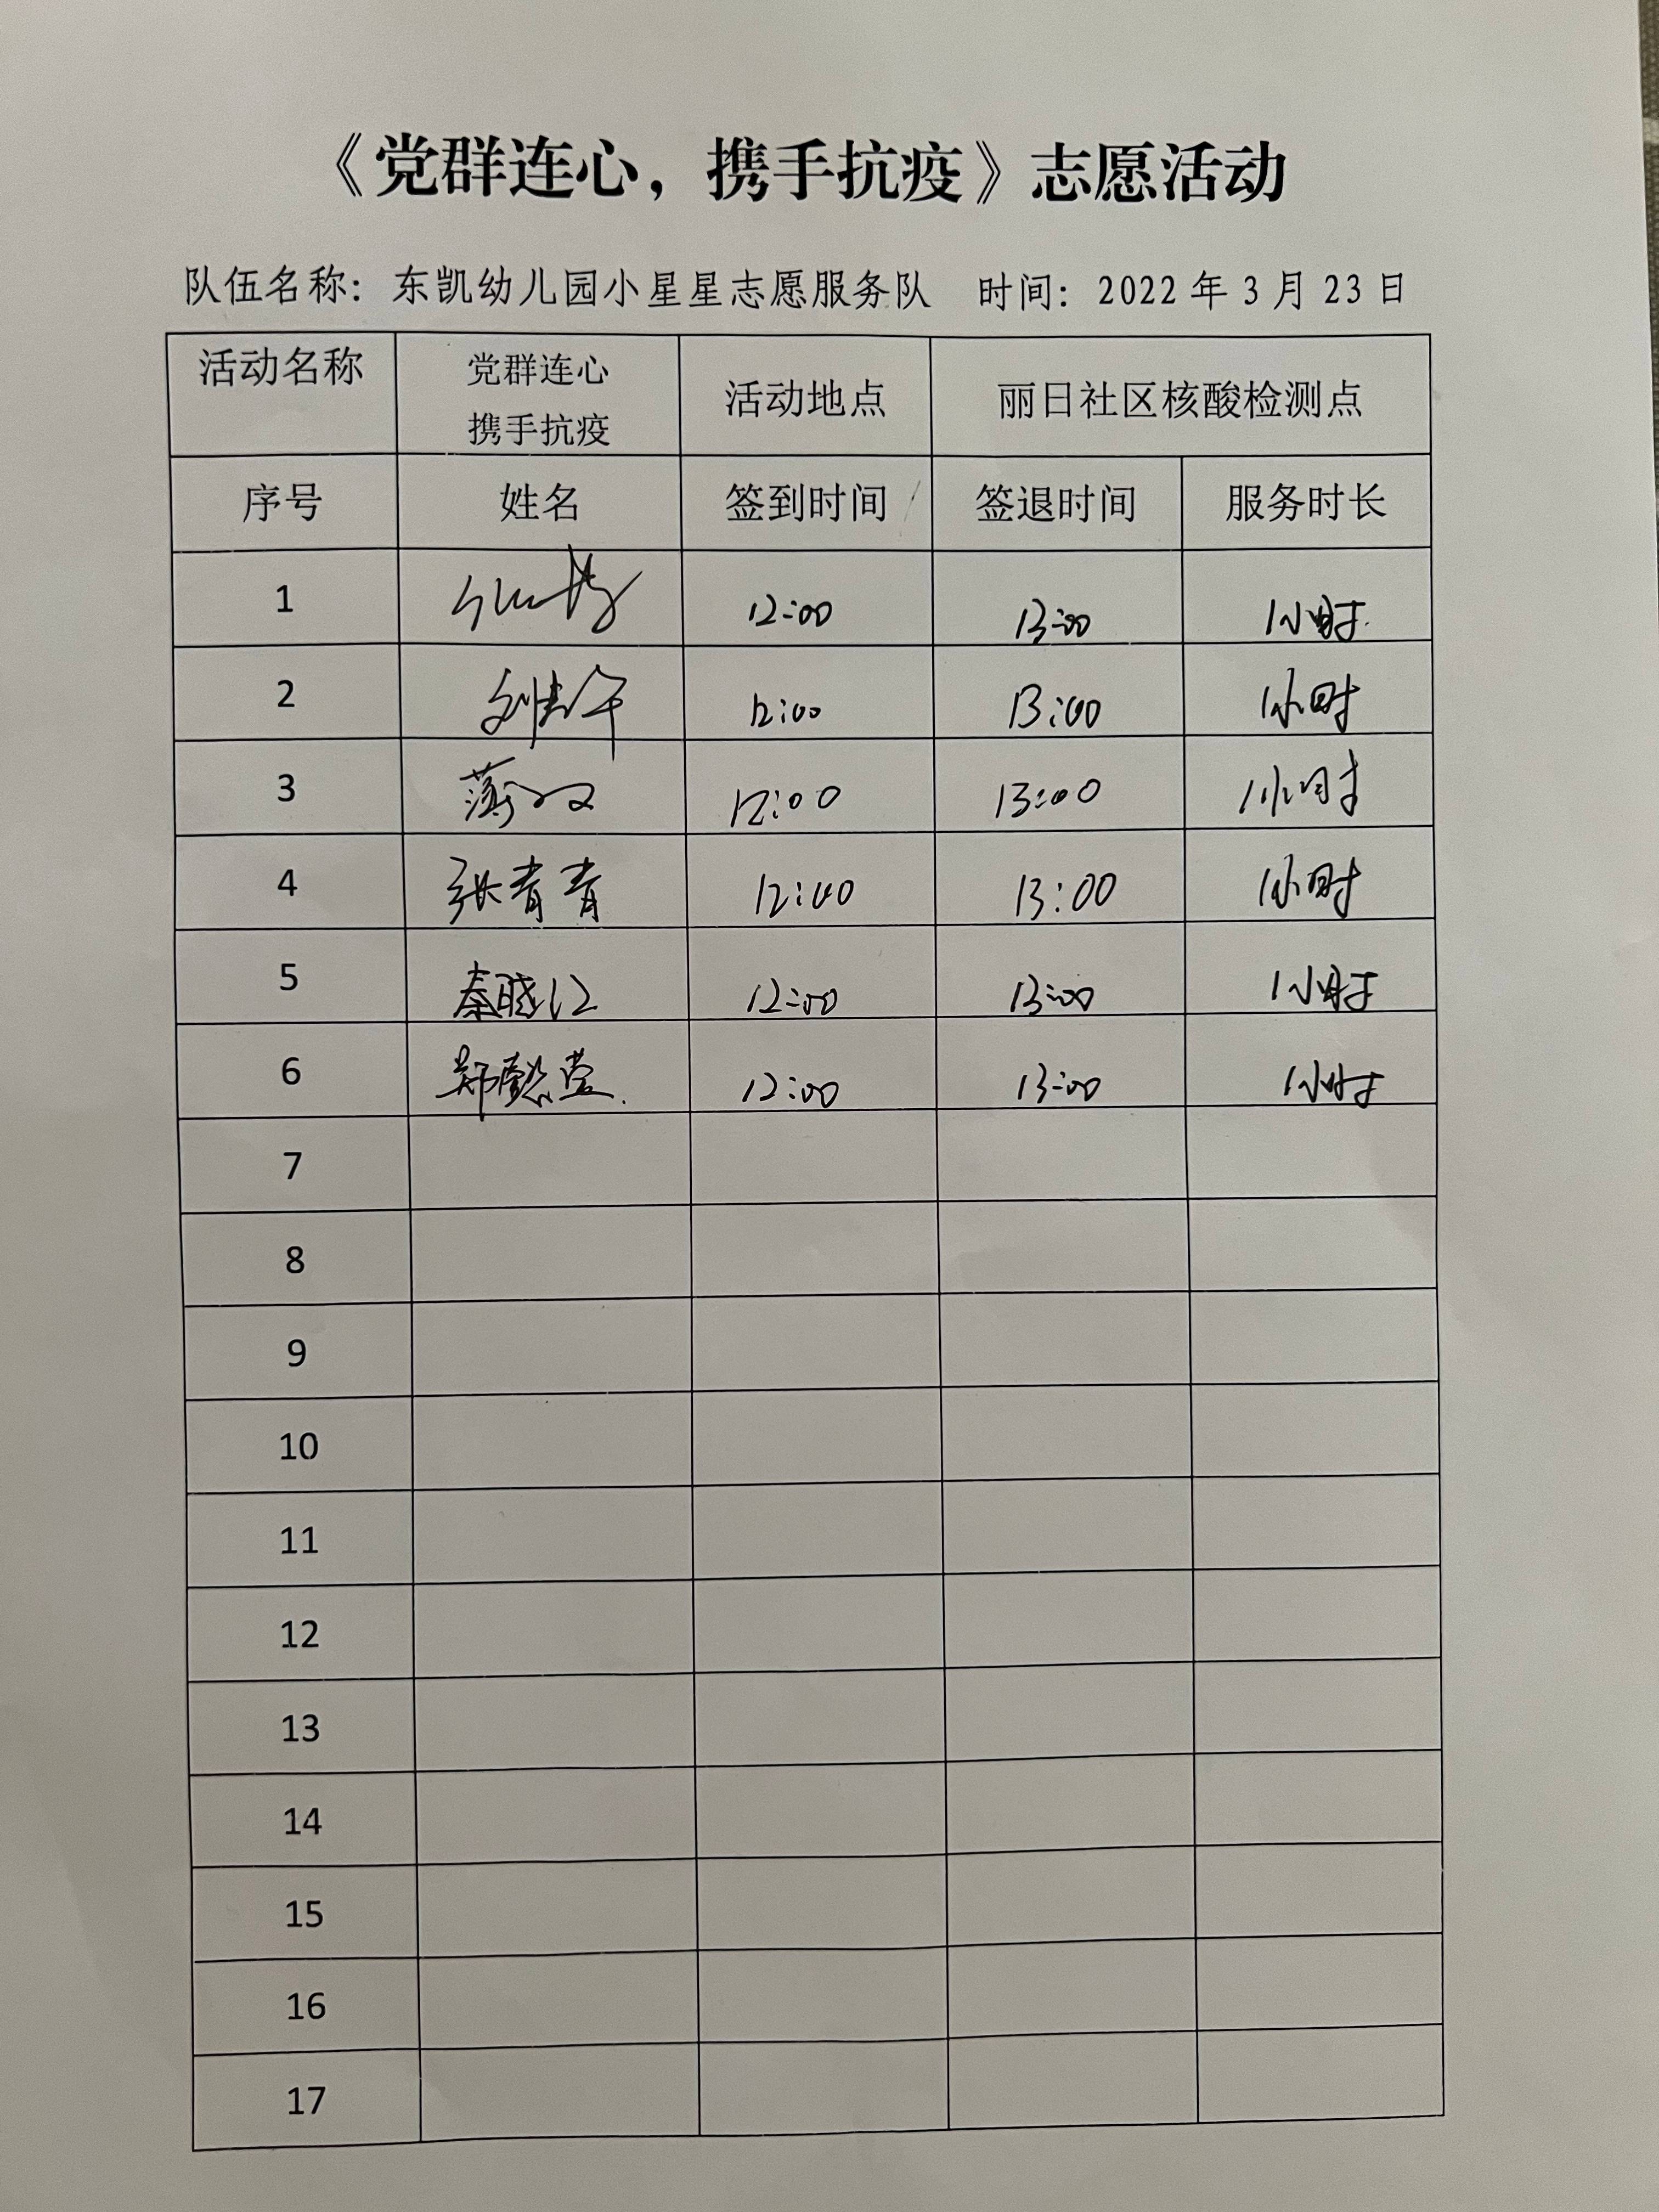 《党群连心，携手抗疫》志愿活动
队伍名称：东凯幼儿园小星星志愿服务队 时间：2022 年 3 月 23 日
活动名称 党群连心 携手抗疫 活动地点 丽日社区核酸检测点
序号 姓名 签到时间 签退时间 服务时长
1 12:00 13:00 1小时
2 刘 12:00 13:00 1小时
3 12:00 13:00 1小时
4 张青青 12:00 13:00 1小时
5 秦晓江 12:00 13:00 1小时
6 郑懿莹 12:00 13:00 1小时
7
8
9
10
11
12
13
14
15
16
17